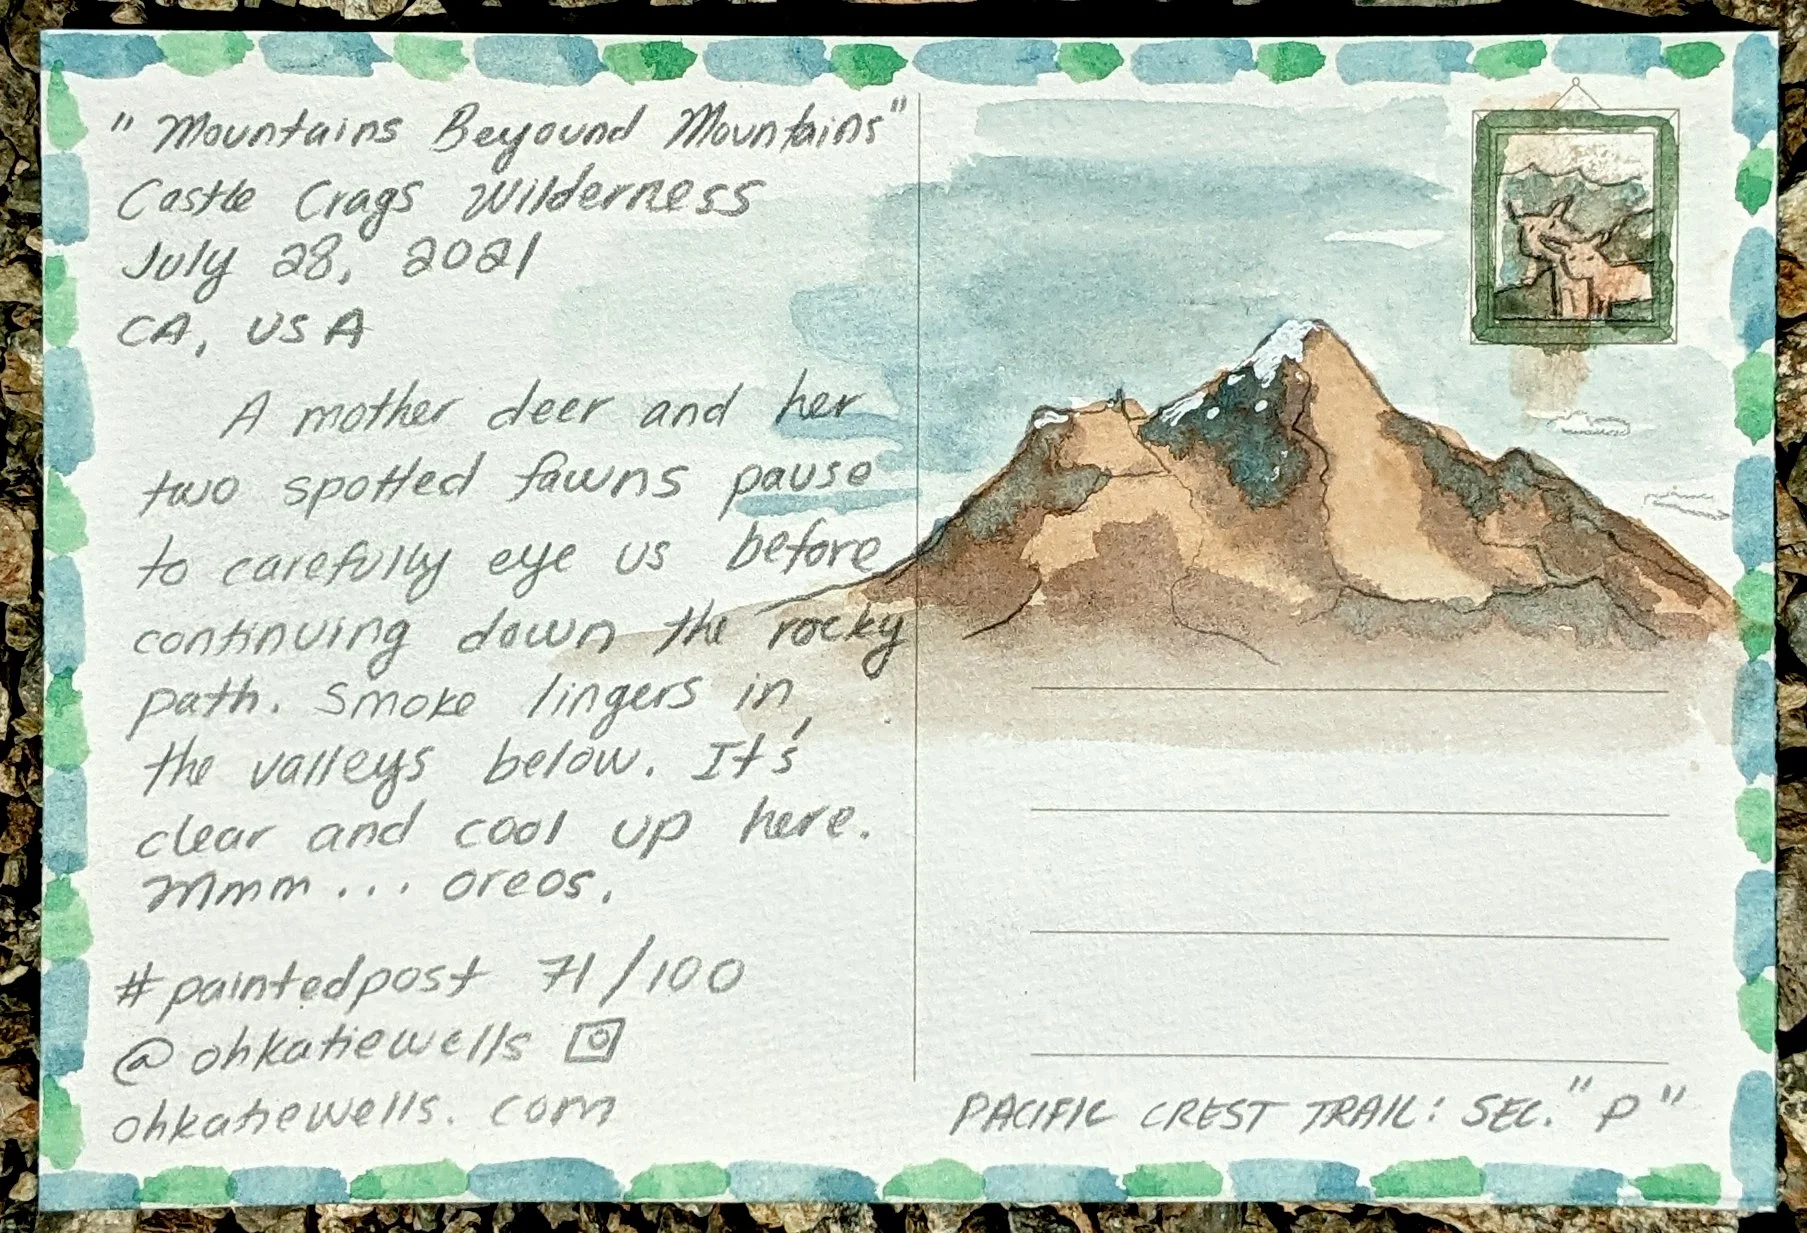 "Mountains Beyound Mountains"
Castle Crags Wilderness
July 28, 2021
CA, USA
A mother deer and her
two spotted fawns pause
to carefully eye us before
continuing down the rocky
path. Smoke lingers in
the valleys below. It's
clear and cool up here.
Mmm... oreos.
#paintedpost 71/100
@ohkatiewells
ohkatiewells.com
PACIFIC CREST TRAIL: SEC. "P"